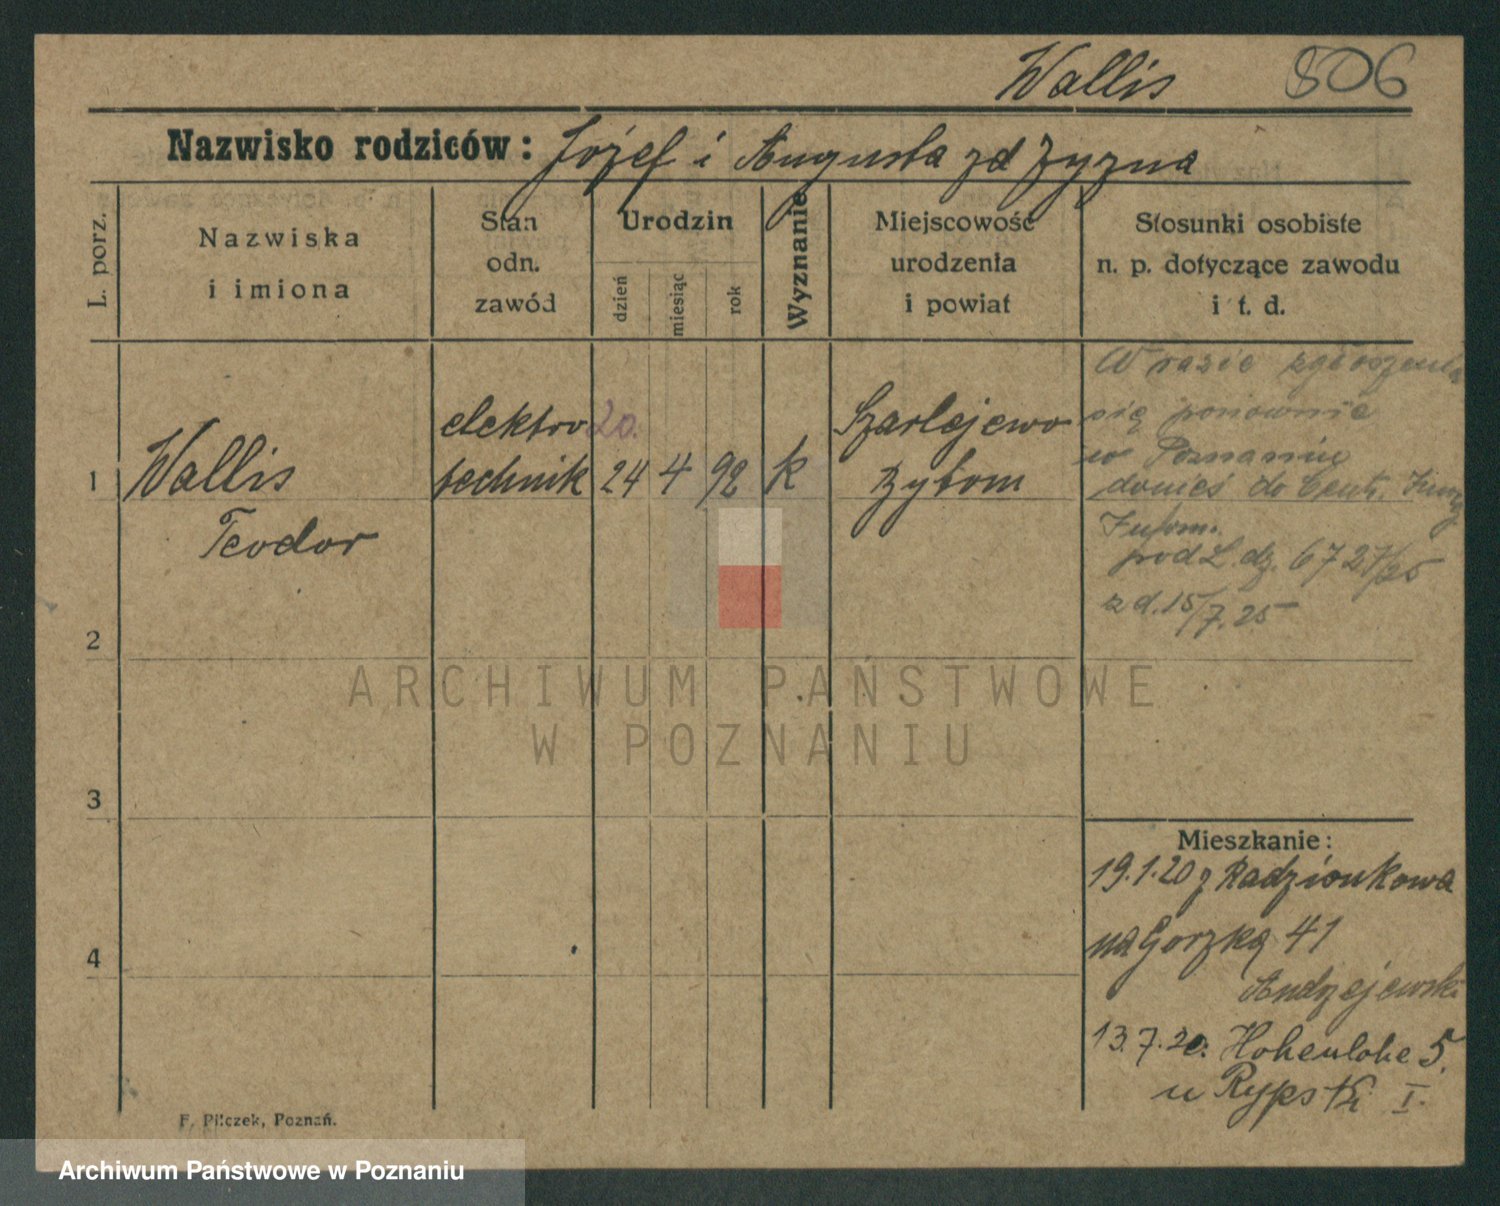 Wallis 806
Nazwisko rodziców: Józef i Augusta zd Zyzna
L. porz.
Nazwiska
i imiona
Stan
odn.
zawód
Urodzin
dzień
miesiąc
rok
Wyznanie
Miejscowość
urodzenia
i powiat
Stosunki osobiste
n. p. dotyczące zawodu
i t. d.
1
Wallis
Teodor
elektro
technik
20.
24 4 92
k
Szarlejewo
Bytom
W razie zgłoszenia
się ponownie
w Poznaniu
donieś do Centr.
Inform.
pod L. dz. 6727/25
z d. 15/7.25
2
3
4
Mieszkanie:
19.1.20 z Radzionkowa
na Gorzką 41
Andrzejewski
13.7.20. Hohenlohe 5.
u Rypski I.
F. Pilczek, Poznań.
ARCHIWUM PAŃSTWOWE
W POZNANIU
Archiwum Państwowe w Poznaniu